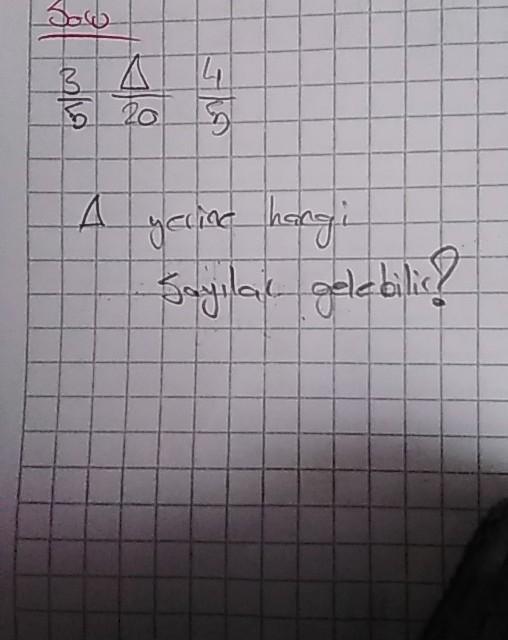 Soru
3/5 Δ/20 4/5
Δ yerine hangi
sayılar gelebilir?